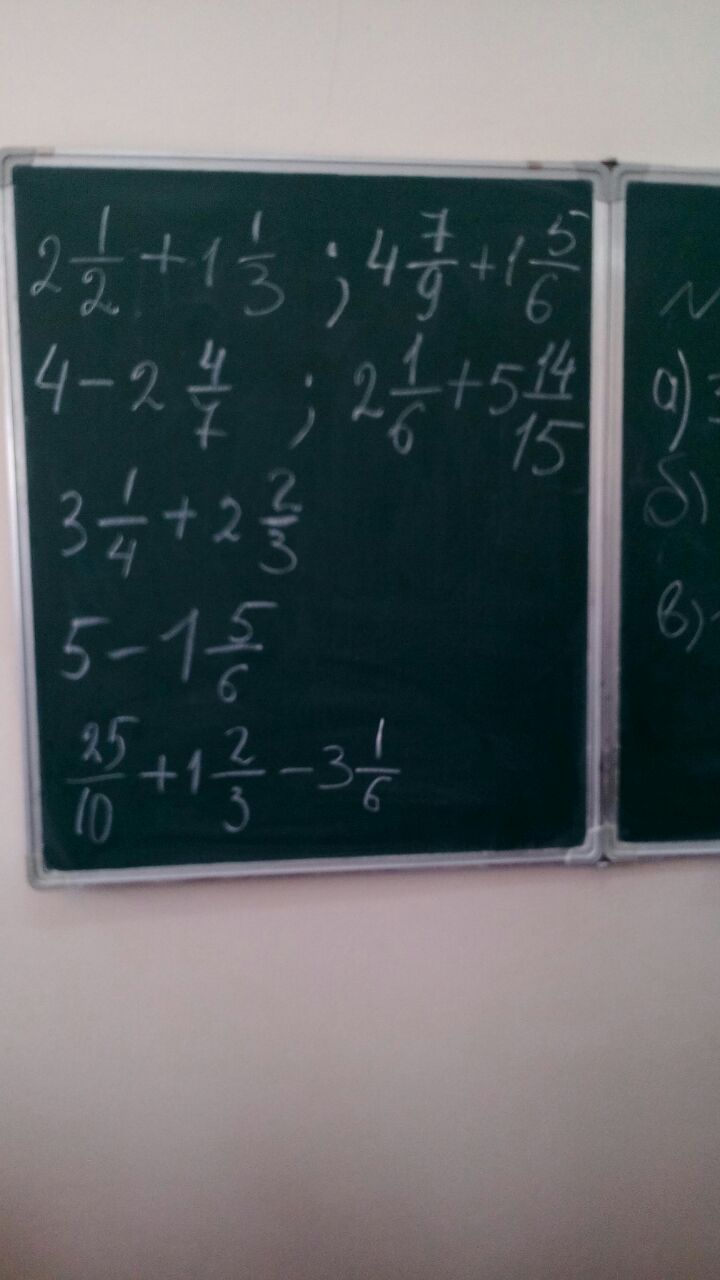 2 1/2 + 1 1/3 ; 4 7/9 + 1 5/6
4 - 2 4/7 ; 2 1/6 + 5 14/15
3 1/4 + 2 2/3
5 - 1 5/6
25/10 + 1 2/3 - 3 1/6
а) 3
б)
в)